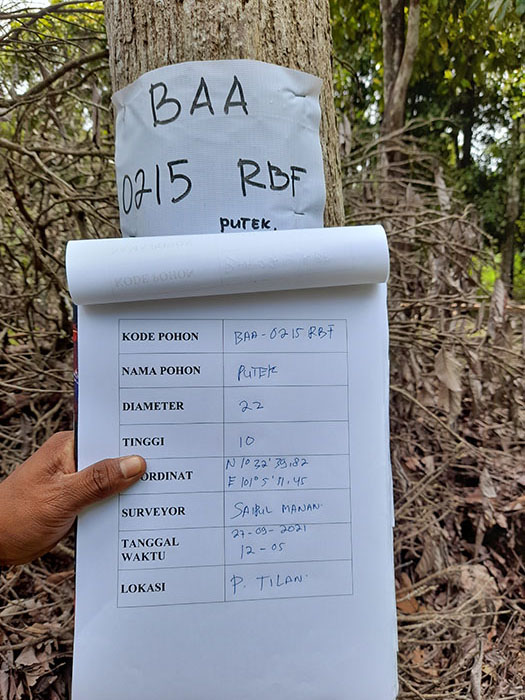 BAA
0215 RBF
PUTEK.
KODE POHON BAA-0215 RBF
NAMA POHON PUTEK
DIAMETER 22
TINGGI 10
ORDINAT N 1° 32' 39,82
E 101° 5' 11,45
SURVEYOR SAIRUL MANAN.
TANGGAL 27-09-2021
WAKTU 12-05
LOKASI P. TILAN.